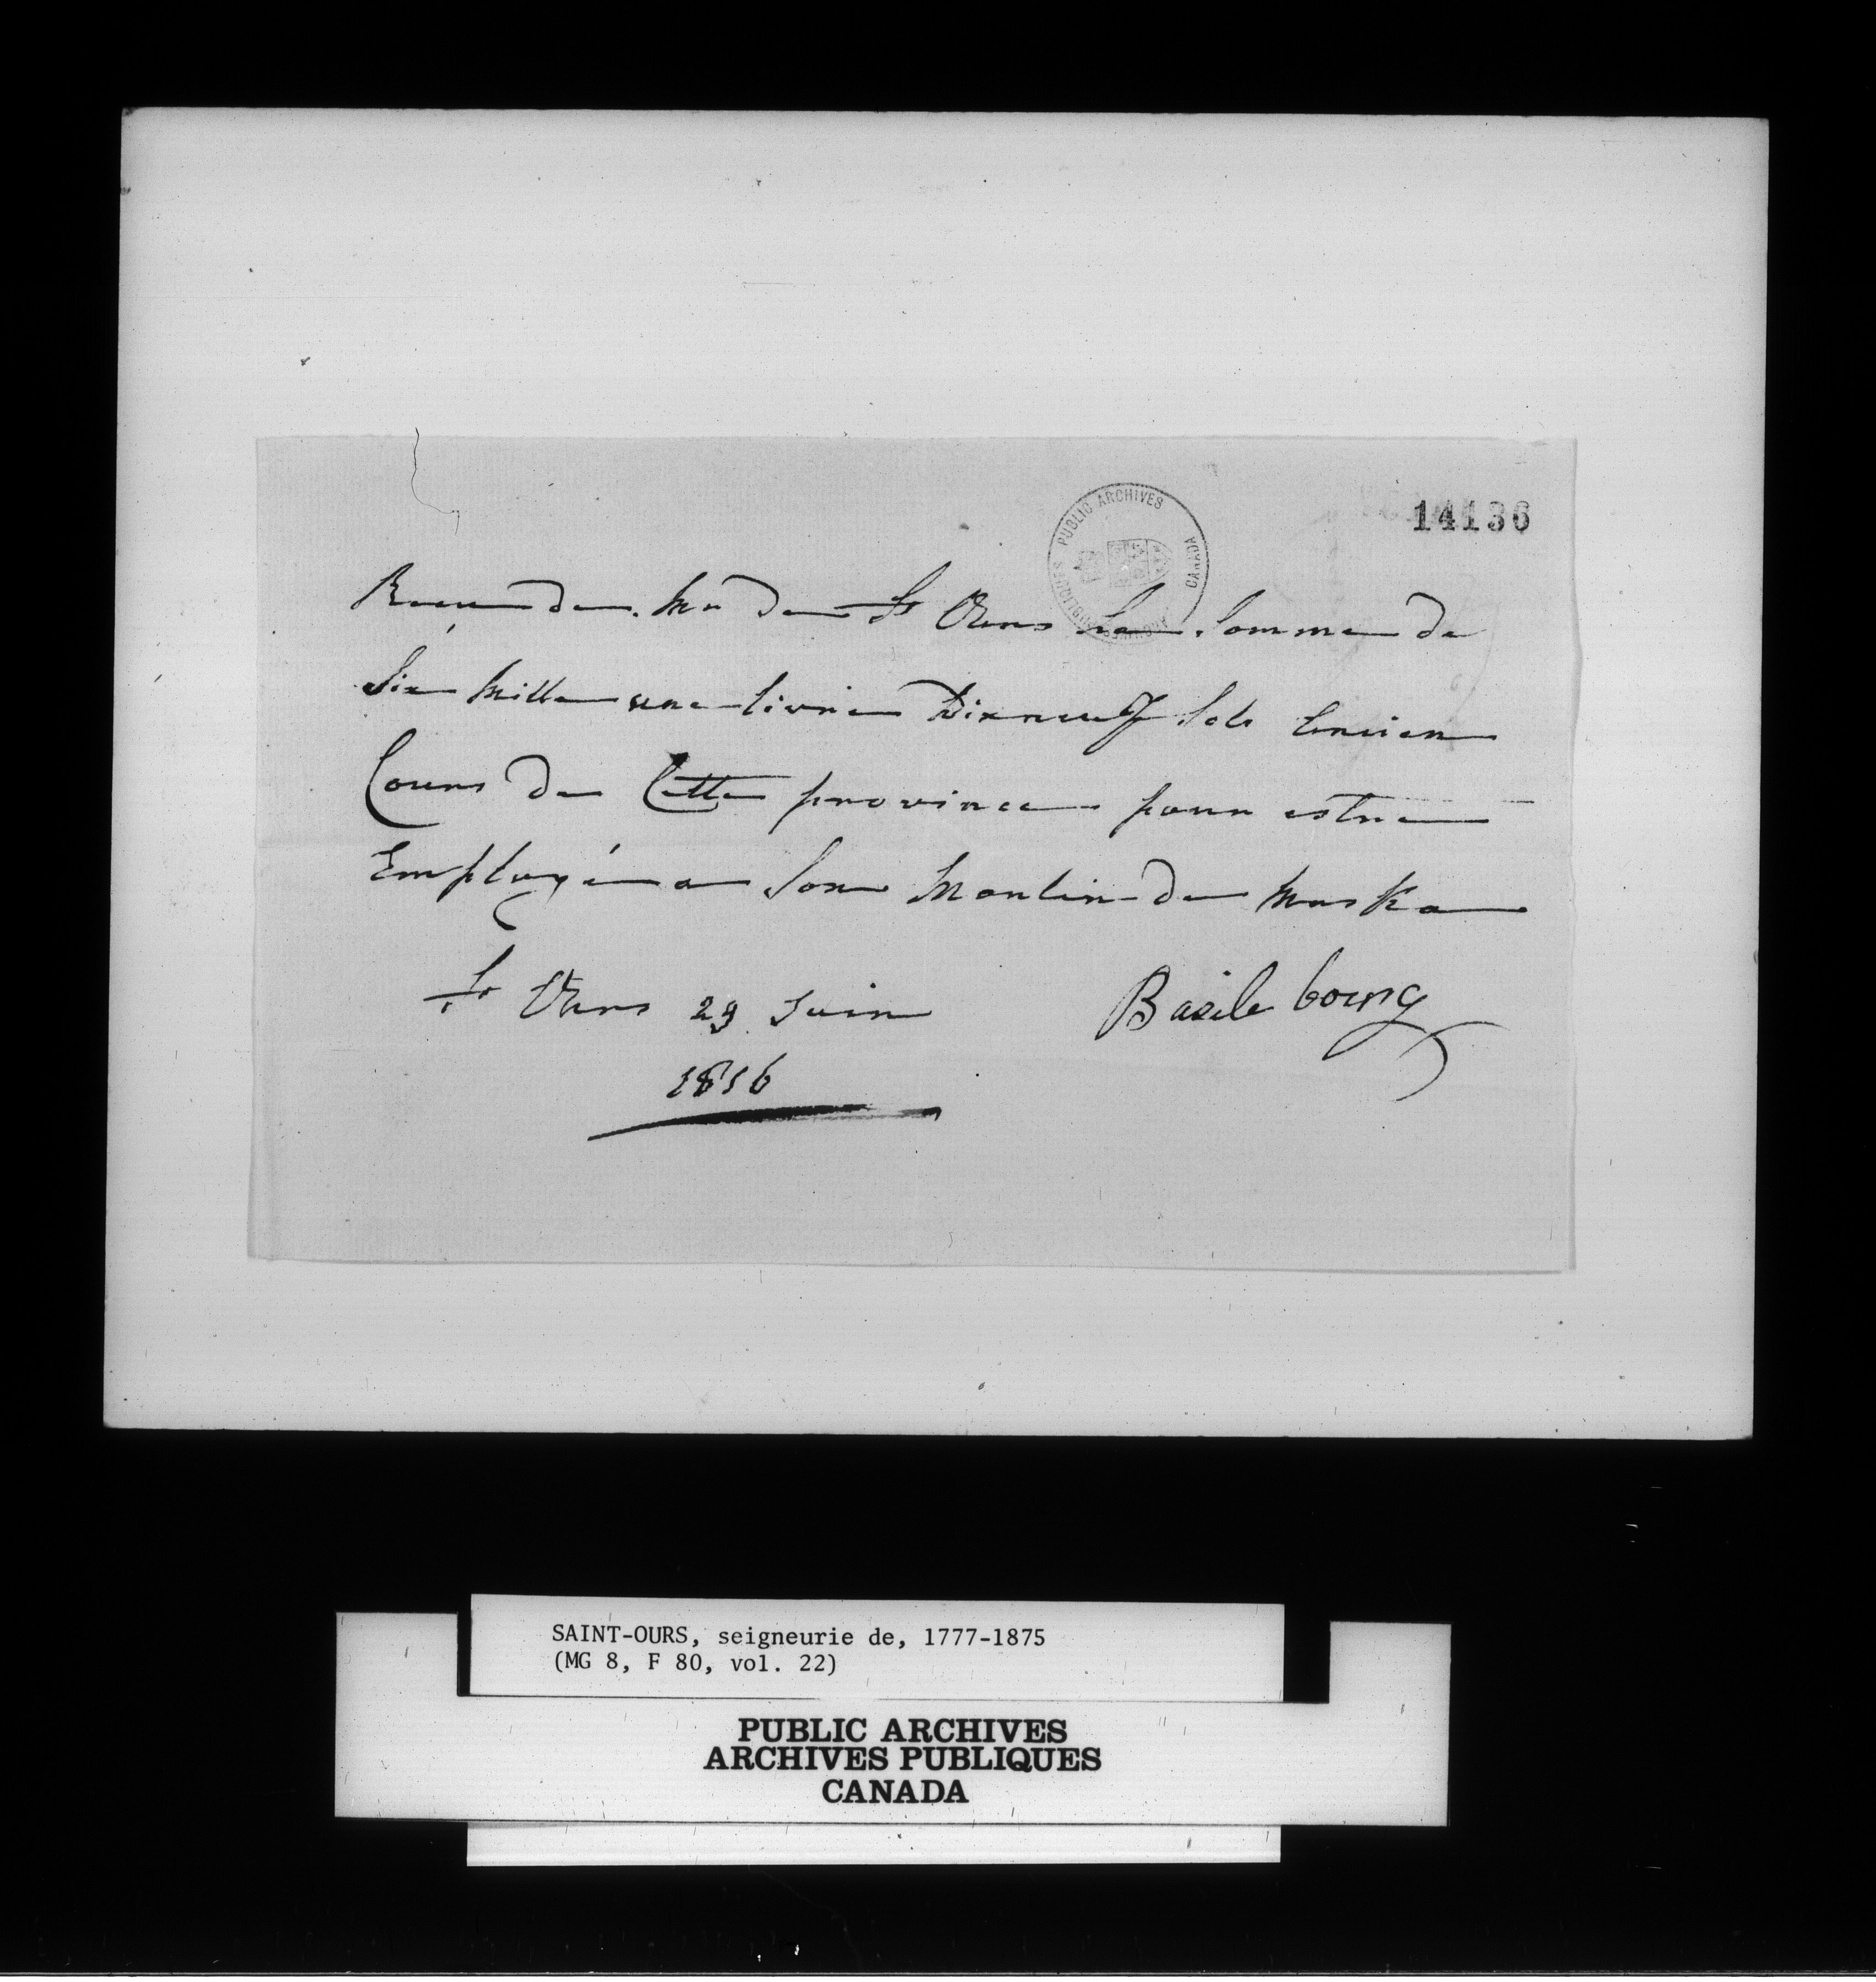 14136
PUBLIC ARCHIVES CANADA
ARCHIVES PUBLIQUES
Recu de Mr de St Ours La Somme de
Six Mille une livre Dixneuf Sols Encien
Cours de Cette province pour estre
Employé a Son Moulin de Maska
St Ours 29 Juin
1816
Basile bourg
SAINT-OURS, seigneurie de, 1777-1875
(MG 8, F 80, vol. 22)
PUBLIC ARCHIVES
ARCHIVES PUBLIQUES
CANADA